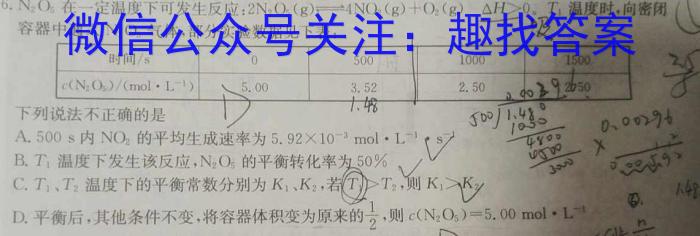 6. N₂O₅ 在一定温度下可发生反应:2N₂O₅(g)⇌4NO₂(g)+O₂(g) ΔH>0。T₁ 温度时,向密闭
容器中
微信公众号关注：趣找答案
时间/s 0 500 1000 1500
c(N₂O₅)/(mol·L⁻¹) 5.00 3.52 2.50 2.50
1.48
下列说法不正确的是
A. 500 s 内 NO₂ 的平均生成速率为 5.92×10⁻³ mol·L⁻¹·s⁻¹
B. T₁ 温度下发生该反应,N₂O₅ 的平衡转化率为 50%
C. T₁、T₂ 温度下的平衡常数分别为 K₁、K₂,若 T₁>T₂,则 K₁>K₂
D. 平衡后,其他条件不变,将容器体积变为原来的1/2,则 c(N₂O₅)=5.00 mol·L⁻¹
D
500 1.480
1000
4800
4500
3000
0.00296
1.48